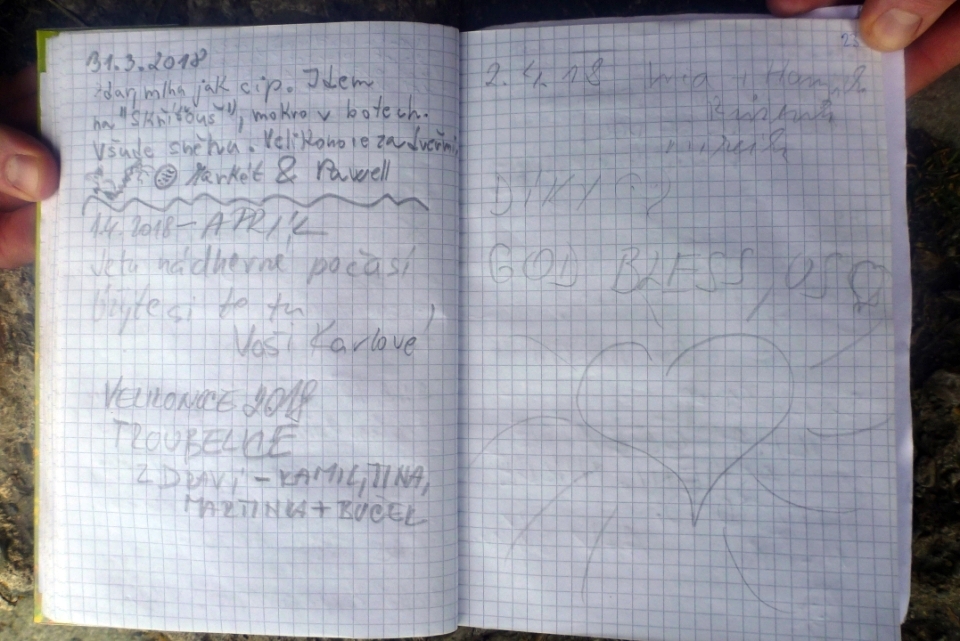 31.3.2018
mlha jak cip. Jdem
na "Skřítouš", mokro v botech.
Všude sněhu. Velikonoce za dveřmi
Markét & Pawell
1.4.2018 - APRÍL
Je tu nádherné počasí
Užijte si to tu
Vaši Karlové
VELIKONOCE 2018
TROUBELICE
ZDRAVÍ - KAMIL, TINA,
MARTINKA + BUČEK
23
2.4.18 i
DÍKY
GOD BLESS US